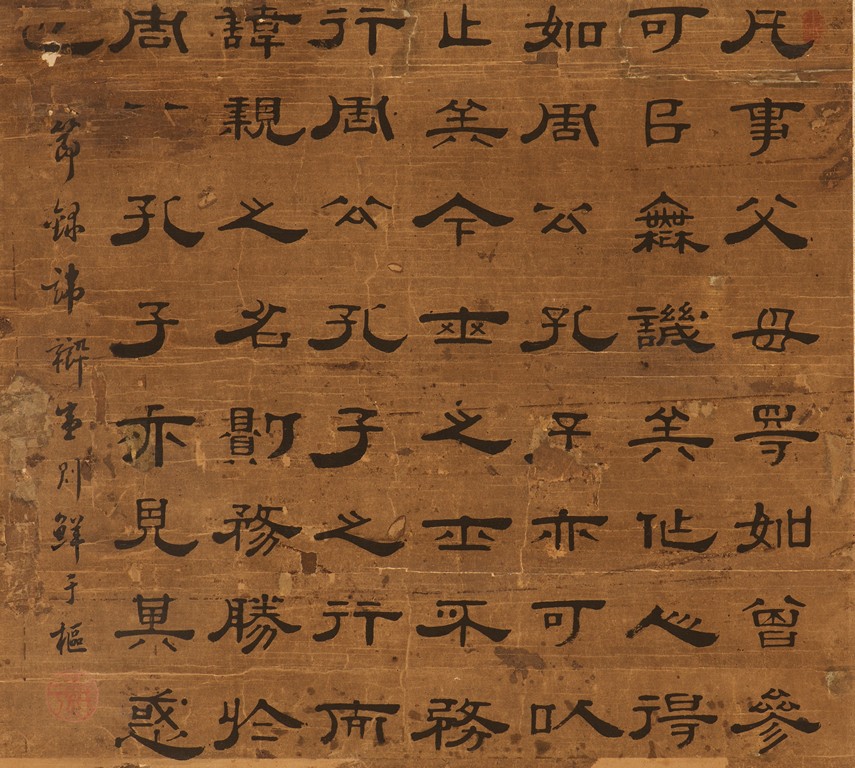 凡事父母㝵如曾參
可㠯無譏矣作人得
如周公孔子亦可以
止矣今世之士不務
行周公孔子之行而
諱親之名則務勝於
周公孔子亦見其惑
也
節錄諱辯壹則鮮于樞